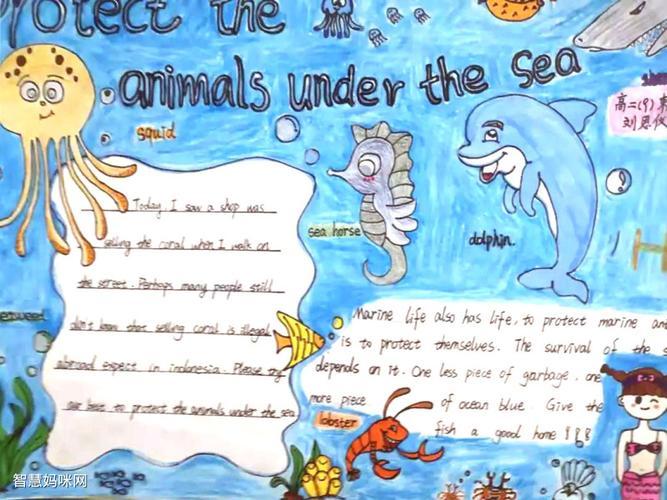 Protect the
animals under the sea
squid
高二(9)
刘恩仪
Today, I saw a shop was
selling the coral when I walk on
the street. Perhaps many people still
don't know that selling coral is illegal
abroad expect in indonesia. Please try
our best to protect the animals under the sea
sea horse
dolphin.
seaweed
Marine life also has life, to protect marine ani
is to protect themselves. The survival of the s
depends on it. One less piece of garbage, one
more piece of ocean blue. Give the
lobster
fish a good home !!!
智慧妈咪网